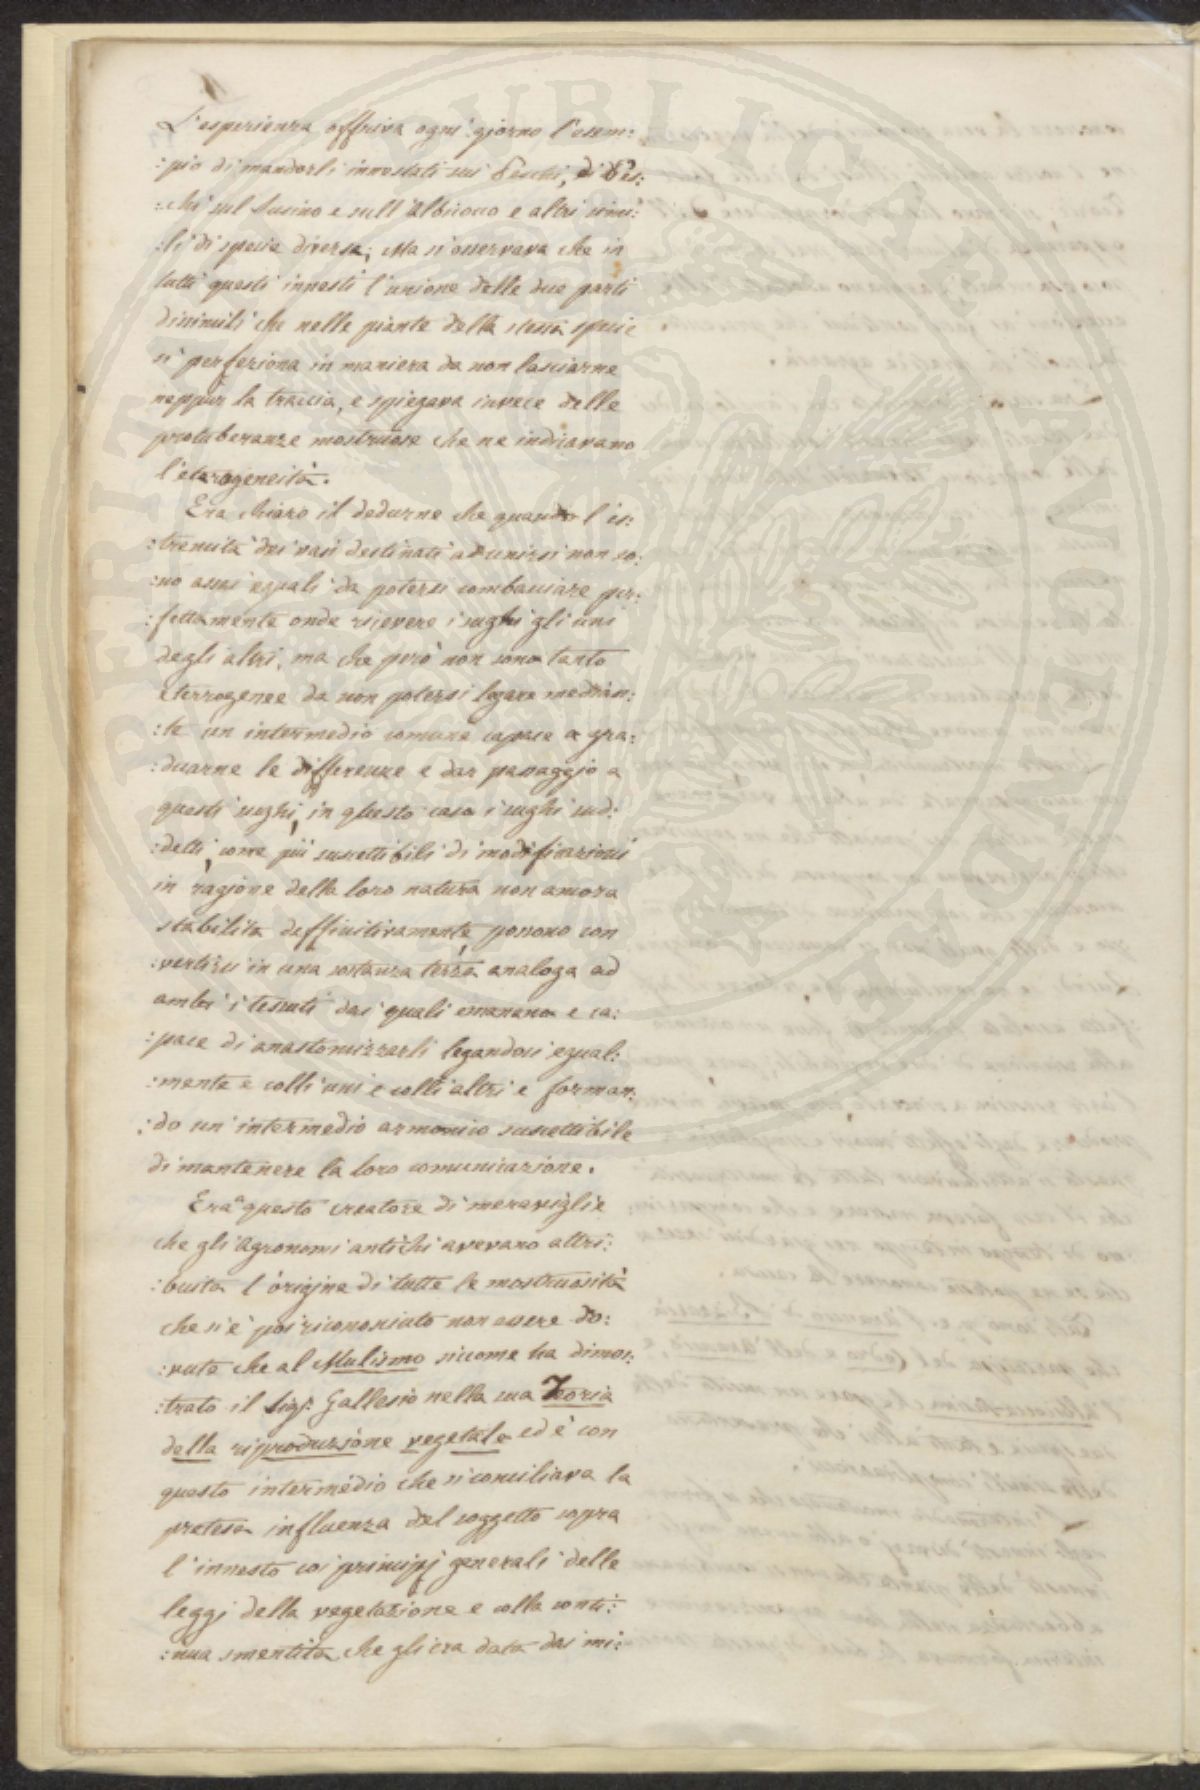 L'esperienza offriva ogni giorno l'esem:
:pio di mandorli innestati sui Peschi, di Pes:
:chi sul Susino e sull'Albicocco e altri simi:
:li di specie diversa; Ma si osservava che in
tutti questi innesti l'unione delle due parti
dissimili che nelle piante della stessa specie
si perfeziona in maniera da non lasciarne
neppur la traccia, e spiegava invece delle
protuberanze mostruose che ne indicavano
l'eterogeneità.
Era chiaro il dedurne che quando l'es:
:tremità dei vasi destinati ad unirsi non so:
:no assai eguali da potersi combaciare per:
:fettamente onde ricevere i sughi gli uni
degli altri, ma che però non sono tanto
eterrogenee da non potersi legare median:
:te un intermedio comune capace a gra:
:duarne le differenze e dar passaggio a
questi sughi, in questo caso i sughi sud:
:detti, come più suscettibili di modificazioni
in ragione della loro natura non ancora
stabilita deffinitivamente, possono con
:vertirsi in una sostanza terza analoga ad
ambi i tessuti dai quali emanano e ca:
:pace di anastomizzarli legandosi egual:
:mente e colli uni e colli altri e forman:
:do un'intermedio armonico suscettibile
di mantenere la loro comunicazione.
Era a questo creatore di meraviglie
che gli Agronomi antichi avevano attri:
:buita l'origine di tutte le mostruosità
che si è poi riconosciuto non essere do:
:vute che al Mulismo siccome ha dimos:
:trato il Sigr. Gallesio nella sua Teoria
della riproduzione vegetale ed è con
questo intermedio che si conciliava la
pretesa influenza del soggetto sopra
l'innesto coi principj generali delle
leggi della vegetazione e colla conti:
:nua smentita che gli era data dai mi: